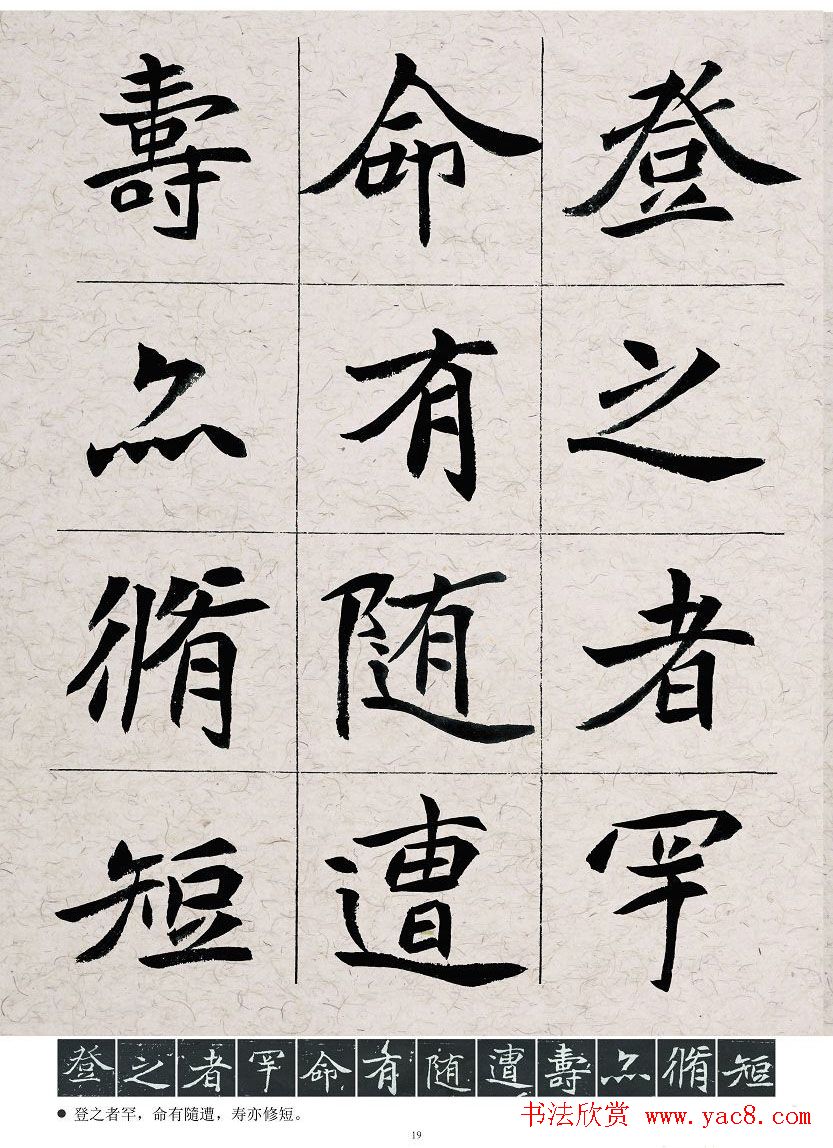 登之者罕
命有随遭
壽亦脩短
登之者罕命有随遭壽亦脩短
● 登之者罕，命有隨遭，寿亦修短。
书法欣赏 www.yac8.com
19